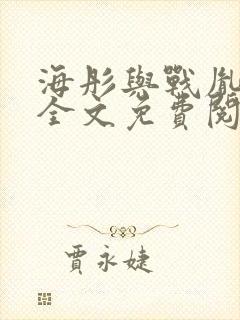 海彤與戰胤
全文免費閱
賈永婕